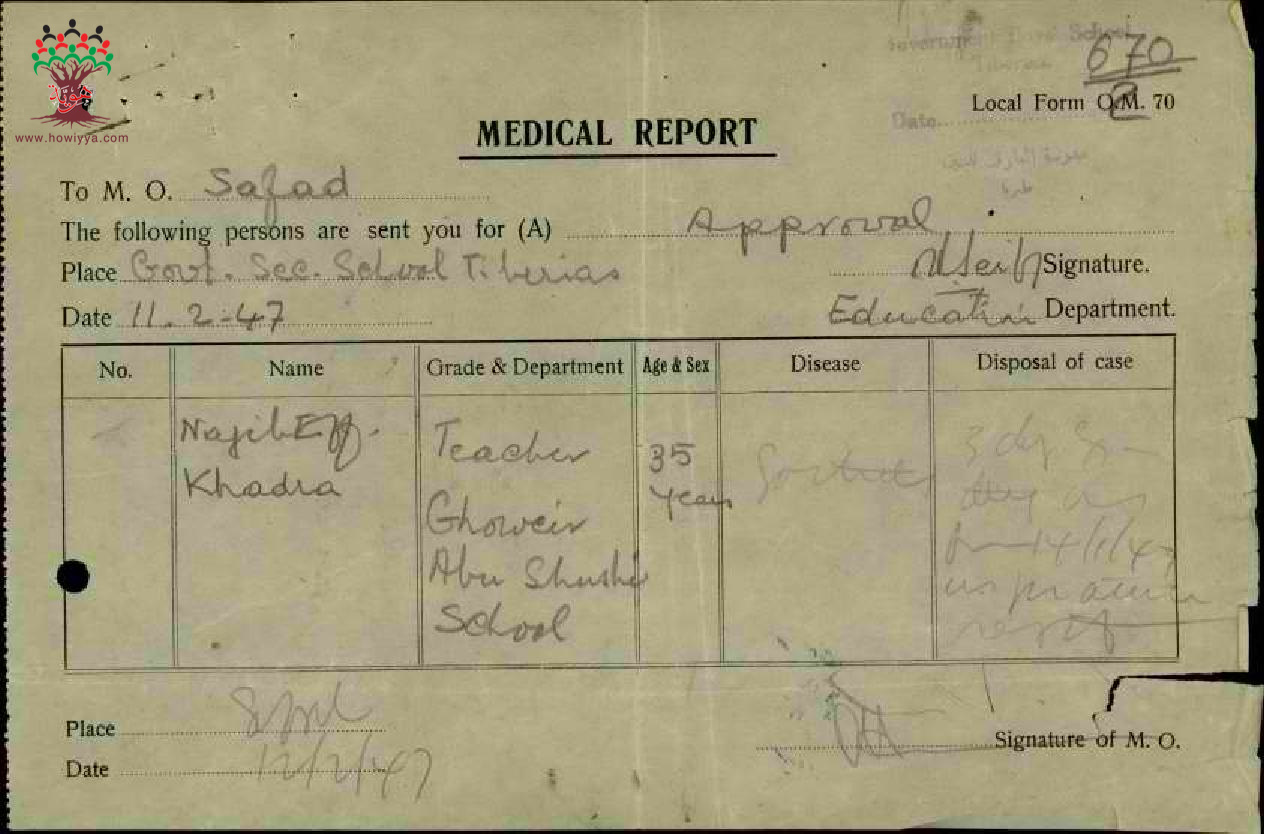 www.howiyya.com
Government Boys School
Tiberias
670
2
Local Form O.M. 70
Date
MEDICAL REPORT
To M. O. Safad
The following persons are sent you for (A) Approval
Place Govt. Sec. School Tiberias Signature.
Date 11.2-47 Education Department.
No. Name Grade & Department Age & Sex Disease Disposal of case
Najib Eff. Teacher 35 3
Khadra years
Ghoweir
Abu Shushi from 14/1/47
School
Place
Date 12/2/47
Signature of M. O.